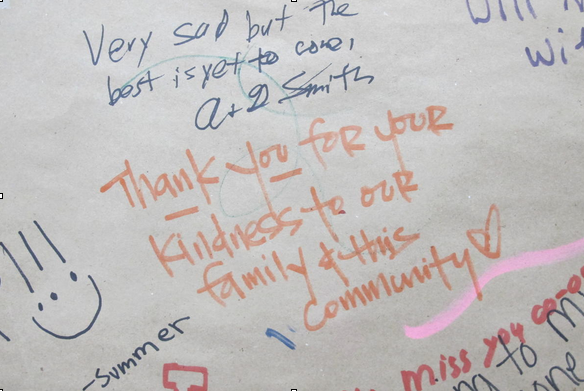 Very sad but the
best is yet to come,
a+D Smith
Will
wit
Thank you for your
kindness to our
family & this
community ♡
!!!
-Summer
miss you co-o
to M